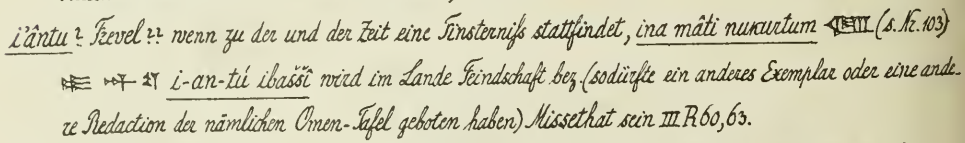 i'ântu? Frevel?? wenn zu der und der Zeit eine Finsterniß stattfindet, ina mâti nukurtum (s. Nr. 103)
i-an-tú ibašší wird im Lande Feindschaft bez. (so dürfte ein anderes Exemplar oder eine ande-
re Redaction der nämlichen Omen-Tafel geboten haben) Missethat sein III R 60, 63.